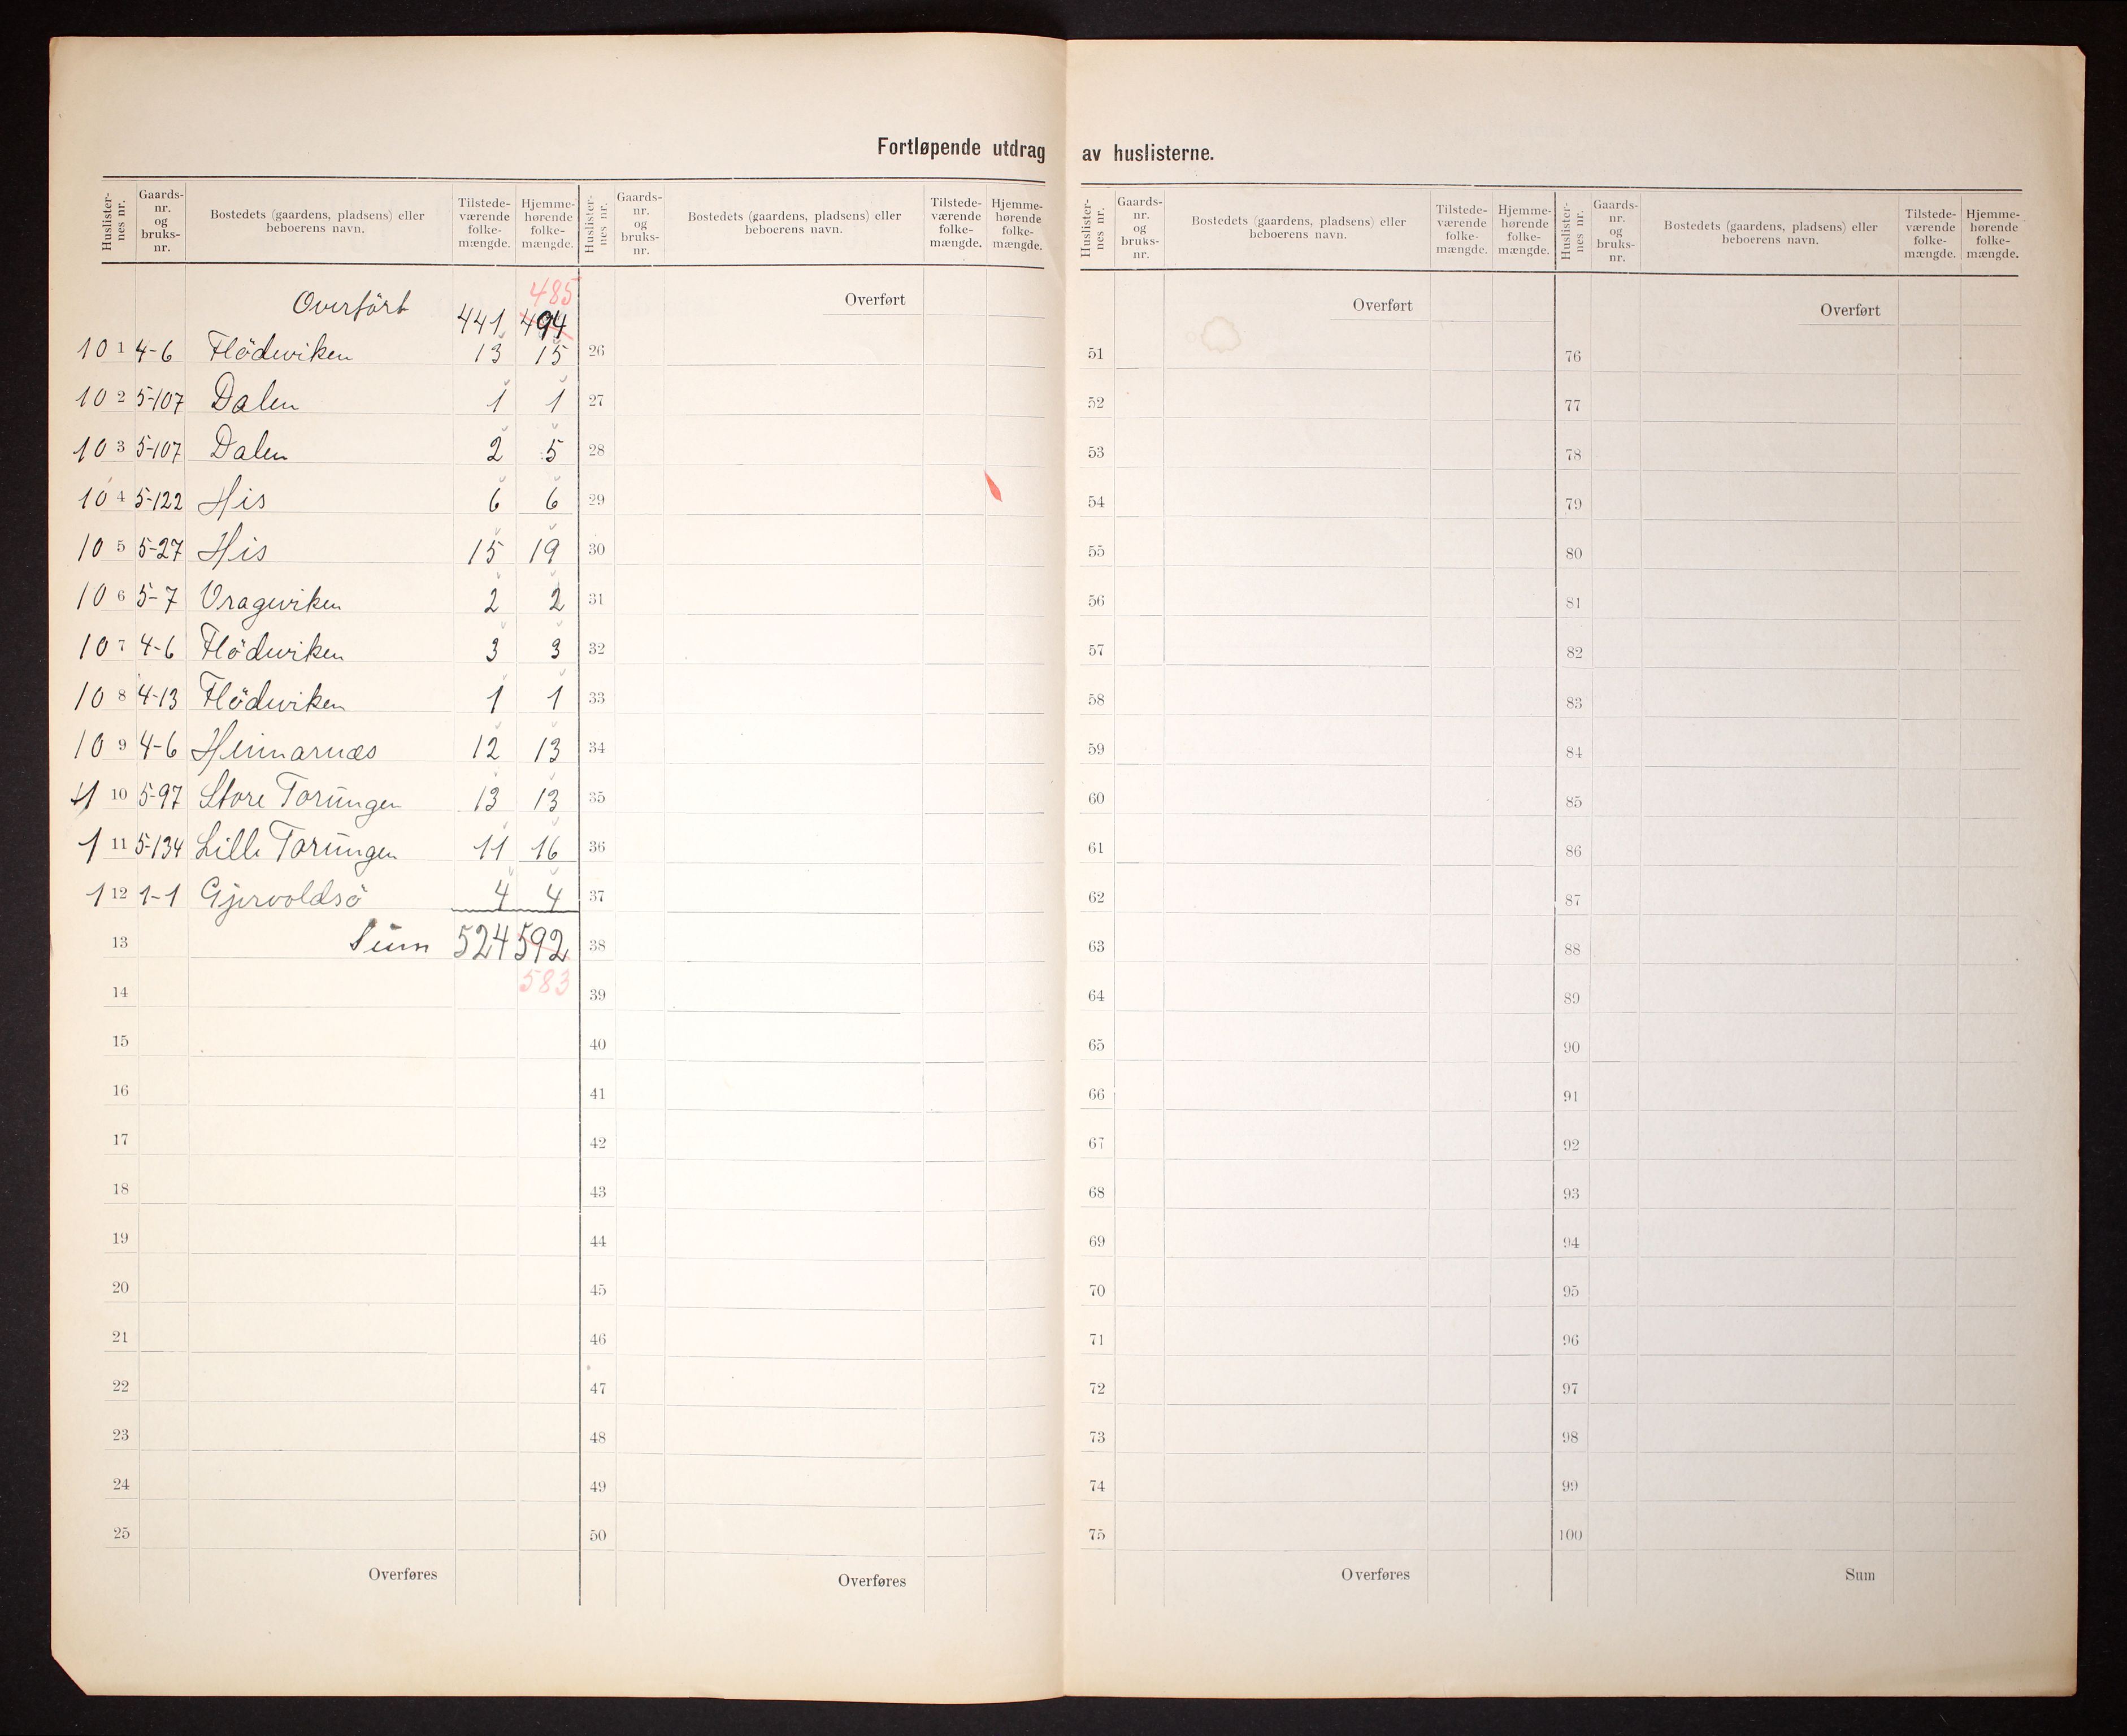 Fortløpende utdrag av huslisterne.
Huslister-nes nr. Gaards-nr. og bruks-nr. Bostedets (gaardens, pladsens) eller beboerens navn. Tilstede-værende folke-mængde. Hjemme-hørende folke-mængde.
485
Overført 441 494
101 4-6 Flödeviken 13 15
102 5-107 Dalen 1 1
103 5-107 Dalen 2 5
104 5-122 His 6 6
105 5-27 His 15 19
106 5-7 Vrageviken 2 2
107 4-6 Flödeviken 3 3
108 4-13 Flödeviken 1 1
109 4-6 Heimarnæs 12 13
110 5-97 Store Torungen 13 13
111 5-134 Lille Torungen 11 16
112 1-1 Gjervoldsö 4 4
13 Sum 524 592
583
14
15
16
17
18
19
20
21
22
23
24
25
Overføres
Huslister-nes nr. Gaards-nr. og bruks-nr. Bostedets (gaardens, pladsens) eller beboerens navn. Tilstede-værende folke-mængde. Hjemme-hørende folke-mængde.
Overført
26
27
28
29
30
31
32
33
34
35
36
37
38
39
40
41
42
43
44
45
46
47
48
49
50
Overføres
Huslister-nes nr. Gaards-nr. og bruks-nr. Bostedets (gaardens, pladsens) eller beboerens navn. Tilstede-værende folke-mængde. Hjemme-hørende folke-mængde.
Overført
51
52
53
54
55
56
57
58
59
60
61
62
63
64
65
66
67
68
69
70
71
72
73
74
75
Overføres
Huslister-nes nr. Gaards-nr. og bruks-nr. Bostedets (gaardens, pladsens) eller beboerens navn. Tilstede-værende folke-mængde. Hjemme-hørende folke-mængde.
Overført
76
77
78
79
80
81
82
83
84
85
86
87
88
89
90
91
92
93
94
95
96
97
98
99
100
Sum